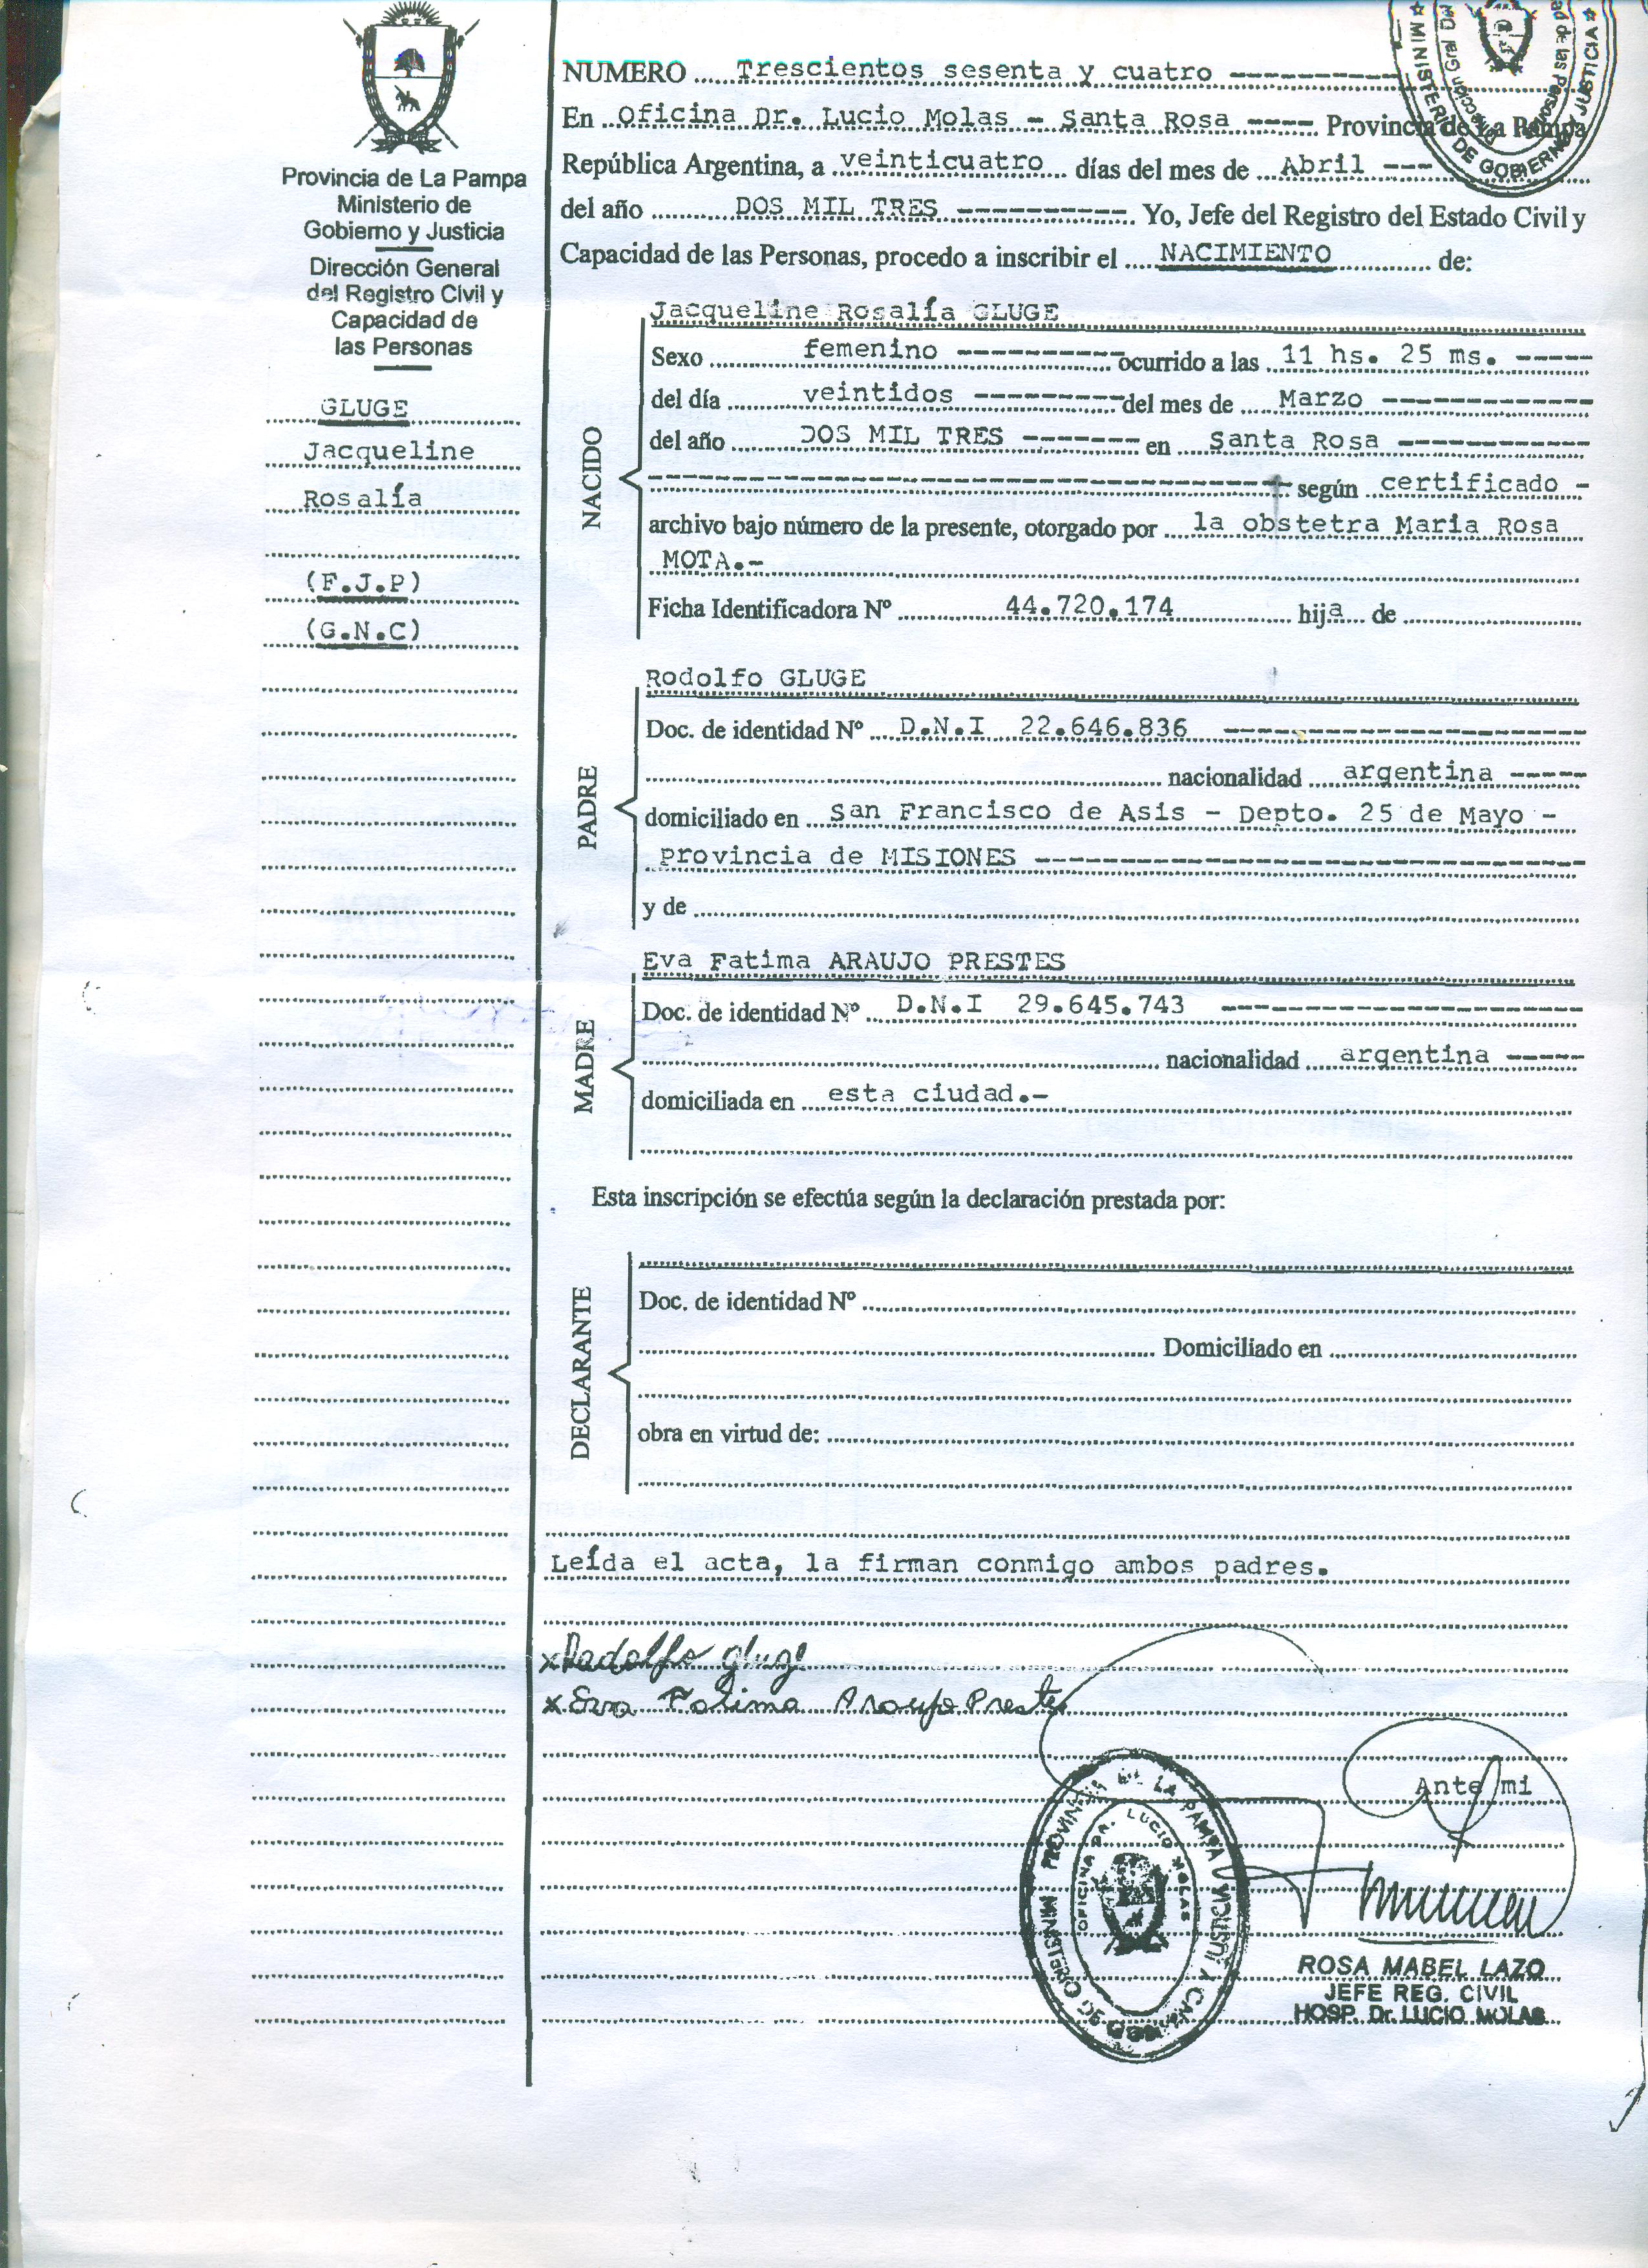 Provincia de La Pampa
Ministerio de
Gobierno y Justicia
Dirección General
del Registro Civil y
Capacidad de
las Personas
GLUGE
Jacqueline
Rosalía
(F.J.P)
(G.N.C)
MINISTERIO DE GOBIERNO Y JUSTICIA
NUMERO Trescientos sesenta y cuatro
En Oficina Dr. Lucio Molas - Santa Rosa ---- Provincia de La Pampa
República Argentina, a veinticuatro días del mes de Abril ---
del año DOS MIL TRES ---------- Yo, Jefe del Registro del Estado Civil y
Capacidad de las Personas, procedo a inscribir el NACIMIENTO de:
NACIDO
Jacqueline Rosalía GLUGE
Sexo femenino ---------- ocurrido a las 11 hs. 25 ms. -----
del día veintidos ---------- del mes de Marzo
del año DOS MIL TRES ------- en Santa Rosa
según certificado -
archivo bajo número de la presente, otorgado por la obstetra Maria Rosa
MOTA.-
Ficha Identificadora Nº 44.720.174 hija de
PADRE
Rodolfo GLUGE
Doc. de identidad Nº D.N.I 22.646.836
nacionalidad argentina -----
domiciliado en San Francisco de Asis - Depto. 25 de Mayo -
Provincia de MISIONES
y de
MADRE
Eva Fatima ARAUJO PRESTES
Doc. de identidad Nº D.N.I 29.645.743
nacionalidad argentina -----
domiciliada en esta ciudad.-
Esta inscripción se efectúa según la declaración prestada por:
DECLARANTE
Doc. de identidad Nº
Domiciliado en
obra en virtud de:
Leída el acta, la firman conmigo ambos padres.
x Rodolfo gluge
x Eva Fatima Araujo Prestes
Ante mi
PROVINCIA DE LA PAMPA
OFICINA DR. LUCIO MOLAS
ROSA MABEL LAZO
JEFE REG. CIVIL
HOSP. Dr. LUCIO MOLAS